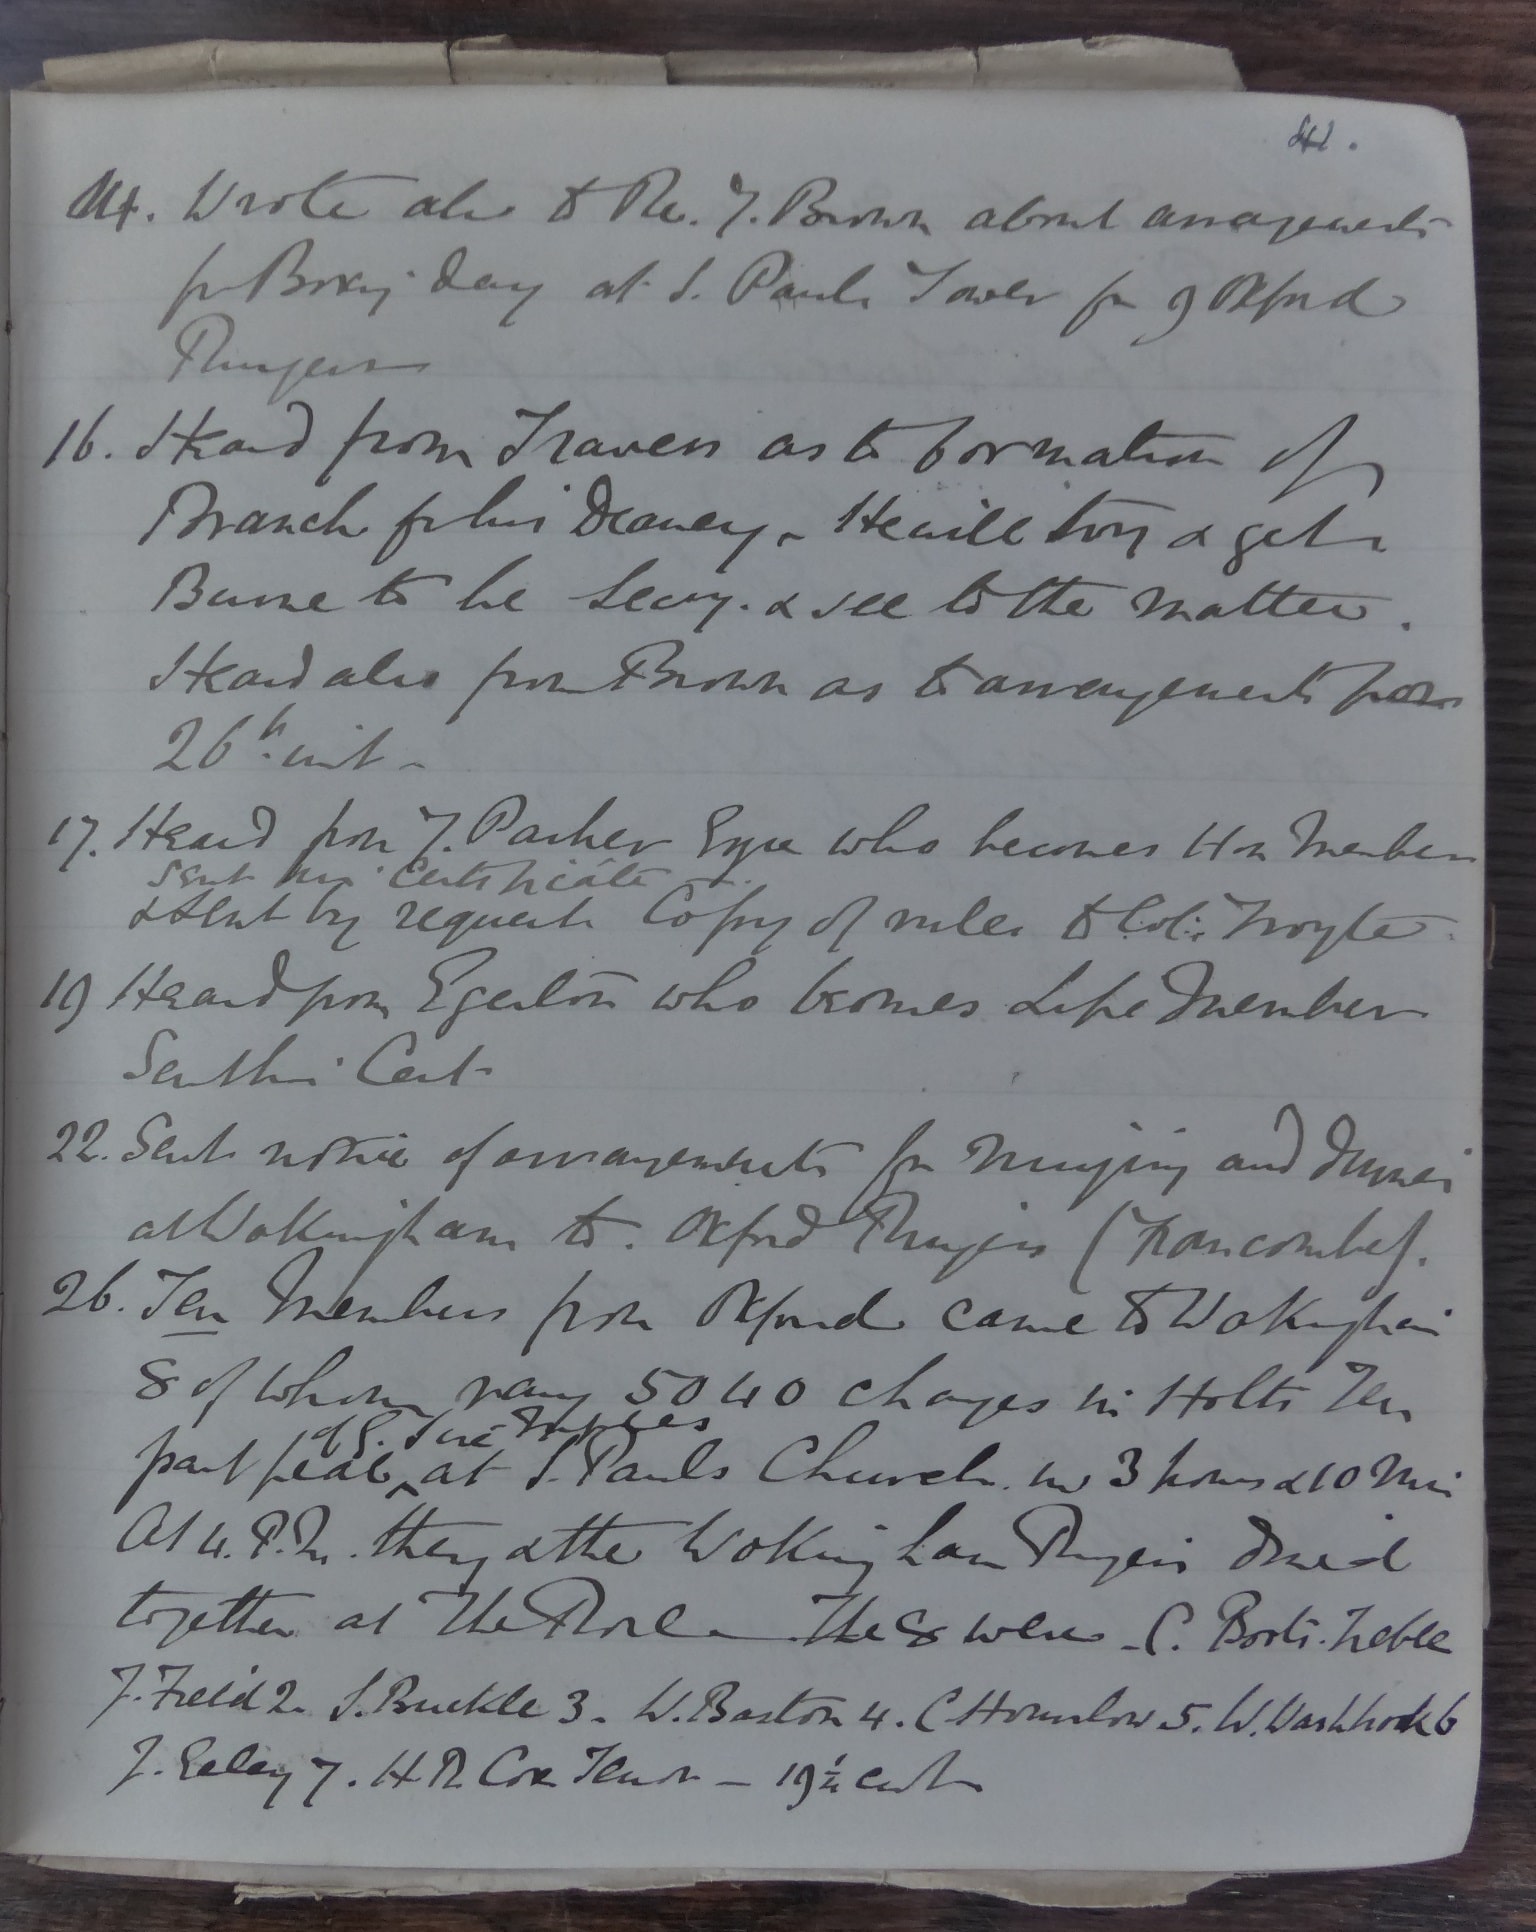 41.
14. Wrote also to Re. J. Brown about arrangements
for Boxing Day at S. Pauls Tower for 9 Oxford
Ringers
16. Heard from Travers as to formation of
Branch for his Deanery - He will try & get
to be Secry. & see to the matter.
Heard also from Brown as to arrangements for
26th inst -
17. Heard from J. Parker Esqre who becomes Hon Member
sent his certificate
& sent by request Copy of rules to Col: Troyte.
19 Heard from Egerton who becomes Life Member
Sent his Cert
22. Sent notice of arrangements for ringing and dinner
at Wokingham to. Oxford Ringers (Francombe).
26. Ten Members from Oxford came to Wokingham
8 of whom rang 5040 changes in Holts Ten
of G. Trites
part peal ^ at S. Pauls Church in 3 hours & 10 Min
At 4. P.M. they & the Wokingham Ringers dined
together at The Rose - The 8 were - C. Boots. Treble
J. Field 2. S. Buckle 3. W. Baston 4. C Hounslow 5. W. Washbrook 6
J. Eeley 7. H R Cox Tenor - 19 1/4 cwt